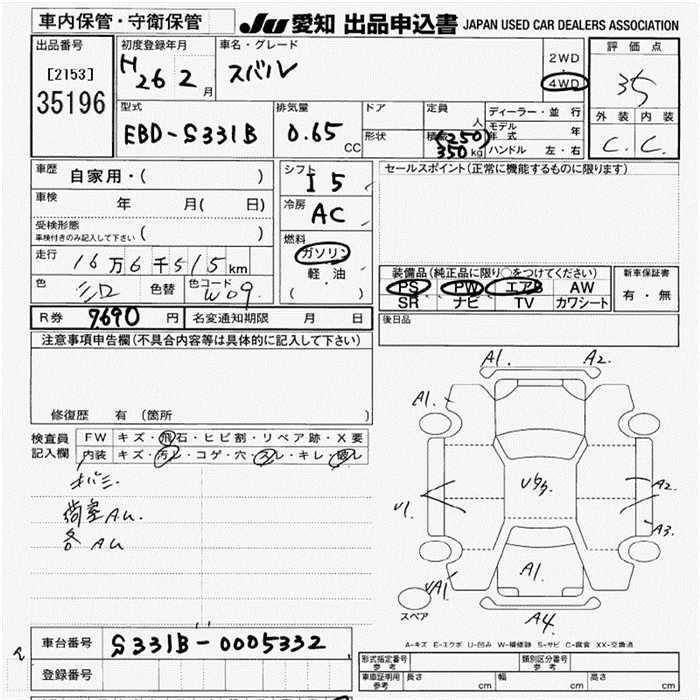 車内保管・守衛保管
JU 愛知 出品申込書 JAPAN USED CAR DEALERS ASSOCIATION
出品番号
[2153]
35196
初度登録年月
H 26 2 月
車名・グレード
スバル
2WD
4WD
評価点
3.5
外装 内装
C. C.
型式
EBD-S331B
排気量
0.65 CC
ドア
形状
定員
人
積載
(250)
350 kg
ディーラー・並行
モデル年式 年
ハンドル 左・右
車歴
自家用・( )
車検 年 月( 日)
受検形態
車検付きのみ記入して下さい ( )
走行 16万6千515km
色 シロ 色替 色コード W09.
シフト
I5
冷房
AC
燃料
ガソリン
軽・油
( )
セールスポイント(正常に機能するものに限ります)
装備品(純正品に限り○をつけてください)
PS PW エアB AW
SR ナビ TV カワシート
新車保証書
有・無
R券 9690 円 名変通知期限 月 日
後日品
注意事項申告欄(不具合内容等は具体的に記入して下さい)
修復歴 有 (箇所 )
検査員記入欄
FW キズ・飛石・ヒビ割・リペア跡・X要
内装 キズ・汚レ・コゲ・穴・スレ・キレ・破レ
キバミ
荷室AU.
各 AU
A1. A2.
A1.
U55.
U1.
A2.
A3.
A1.
UA1.
A4.
スペア
A-キズ E-エクボ U-凹み W-補修跡 S-サビ C-腐食 XX-交換済
車台番号 S331B-0005332
登録番号
形式指定番号 参考
類別区分番号 参考
車庫証明用 参考 長さ cm 幅 cm 高さ cm